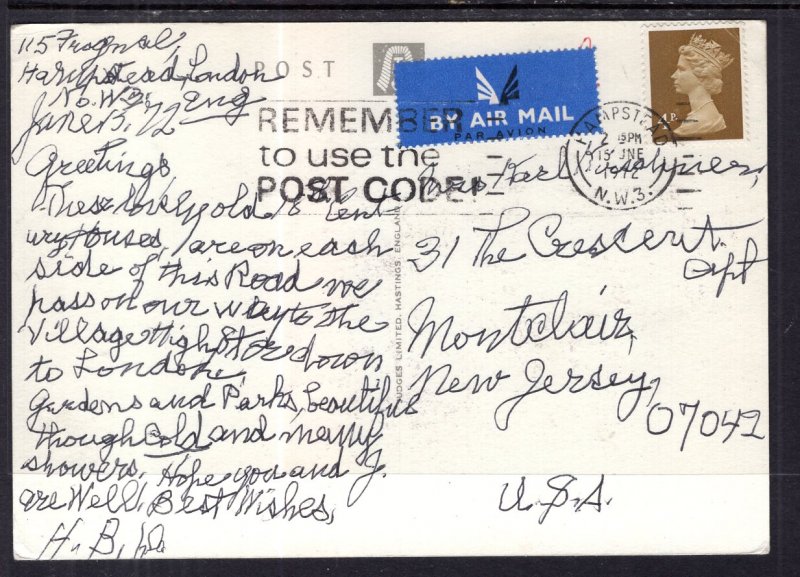 115 Frognal,
Hampstead, London
No. W. 3. Eng
June 15, 72
Greetings,
These lovely old 18 Cent
ury Houses, are on each
side of this Road we
pass on our way to the
Village High Store down
to London.
Gardens and Parks, beautiful
though Cold and many
showers. Hope you and J.
are Well. Best Wishes,
H. B.
POST
BY AIR MAIL
PAR AVION
REMEMBER
to use the
POST CODE!
HAMPSTEAD
15 PM
15 JNE
1972
N.W.3.
4P
JUDGES LIMITED, HASTINGS, ENGLAND
Mrs Karl
31 The Crescent
Apt
Montclair,
New Jersey,
07042
U.S.A.